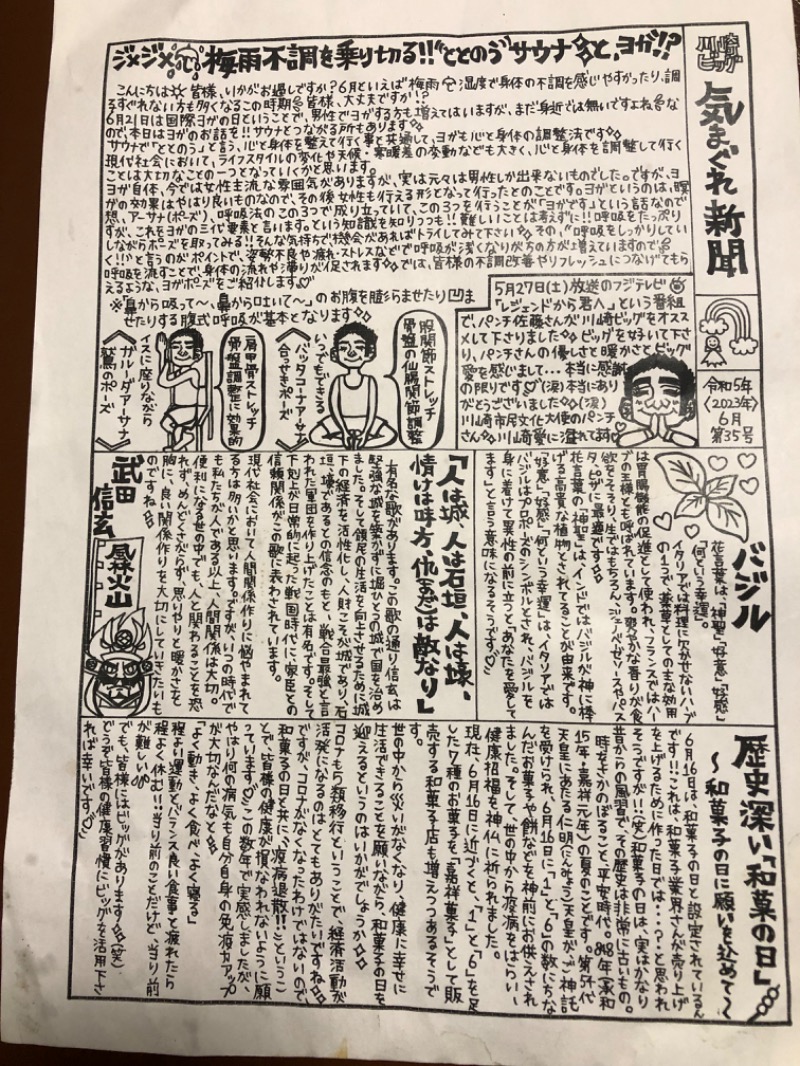 ジメジメ梅雨不調を乗り切る!!"ととのう"サウナと、ヨガ!?
川崎ビッグ
気まぐれ新聞
令和5年
〈2023年〉
6月
第35号
こんにちは 皆様、いかがお過しですか?6月といえば"梅雨"湿度で身体の不調を感じやすかったり、調
る方すぐれない方も多くなるこの時期 皆様、大丈夫ですか!?
6月21日は国際ヨガの日ということで、男性でヨガする方も増えてはいますが、まだ身近では無いですよね な
ので、本日はヨガのお話を!!サウナとつながる所もあります
サウナで"ととのう"と言う、心と身体を整えて行く事と共通して、ヨガも心と身体の調整法です
現代社会において、ライフスタイルの変化や天候・寒暖差の変動なども大きく、心と身体を調整して行く
ことは大切なことの一つとなっていくかと思います。
ヨガ自体、今では女性主流な雰囲気がありますが、実は元々は男性しか出来ないものでした。ですが、ヨ
ガの効果はやはり良いものなので、その後女性も行える形となって行ったとのことです。ヨガというのは、瞑
想、アーサナ(ポーズ)、呼吸法のこの3つで成り立っていて、この3つを行うことが「ヨガです」という話なので
すが、これをヨガの三代要素と言います。という知識を知りつつも!!難しいことは考えずに!!呼吸をたっぷり
しながらポーズを取ってみる!!そんな気持ちで機会があればトライしてみて下さい その"呼吸をしっかりしてい
く!!"と言うのがポイントで、姿勢不良や疲れ・ストレスなどで呼吸が浅くなりがちの方が増えていますので
呼吸を流すことで、身体の流れや滞りが促されます では、皆様の不調改善やリフレッシュにつなげてもら
えるような、ヨガポーズをご紹介します♡
※"鼻から吸って〜、鼻から吐いて〜"のお腹を膨らませたり凹ま
せたりする腹式呼吸が基本となります
5月27日(土)放送のフジテレビ
「レジェンドから君へ」という番組
で、パンチ佐藤さんが川崎ビッグをオスス
メして下さりました ビッグを好いて下さ
り、パンチさんの優しさと暖かさとビッグ
愛を感じまして…本当に感謝
の限りです♡(涙)本当にあり
がとうございました (涙)
川崎市民文化大使のパンチ
さん 川崎愛に溢れてます♡
股関節ストレッチ
骨盤の仙腸関節調整
いつでもできる
バッタコーナアーサナ
合っせきポーズ
肩甲骨ストレッチ
骨盤調整に効果的
イスに座りながら
ガルーダアーサナ
鷲のポーズ
バジル
花言葉は、「神聖」「好意」「好感」
「何という幸運」。
イタリアでは料理に欠かせないハーブ
の1つで、薬草としての主な効用
は胃腸機能の促進として使われ、フランスではハー
ブの王様とも呼ばれています。爽やかな香りが食
欲をそそり、生ではもちろん、ジェノベーゼソースやパス
タ・ピザに最適です
花言葉の「神聖」は、インドではバジルが神に捧
げる高貴な植物とされてることが由来です。
「好意」「好感」「何という幸運」は、イタリアでは
バジルはプロポーズのシンボルとされ、バジルを
身に着けて異性の前に立つと「あなたを愛して
ます」と言う意味になるそうです♡
「人は城、人は石垣、人は壕、
情けは味方、仇(あだ)は敵なり」
有名な歌があります。この歌の通り信玄は
堅強な城を築かずに堀ひとつの城で国を治め
ました。そして領民の生活を向上させるために城
下の経済を活性化し、人財こそが城であり、石
垣、壕であるとの信念のもと、戦合最強と言
われた軍団を作り上げたことは有名です。そして
下剋上が日常的に起った戦国時代に、家臣との
信頼関係がこの歌に表わされています。
現代社会において人間関係作りに悩まれて
る方は多いかと思います。ですが、いつの時代で
も私たちが人である以上、人間関係は大切。
便利になる世の中でも、人と関わることを恐
れず、めんどくさがらず、思いやりと暖かさを
胸に、良い関係作りを大切にしていきたいも
のですね
武田信玄
風林火山
歴史深い「和菓子の日」
〜和菓子の日に願いを込めて〜
6月16日は、和菓子の日と設定されているん
です!!これは、和菓子業界さんが売り上げ
を上げるために作った日では…?と思われ
そうですが!!(笑)和菓子の日は、実はかなり
昔からの風習で、その歴史は非常に古いもの。
時をさかのぼること、平安時代。848年(承和
15年・嘉祥元年)の夏のことです。第54代
天皇にあたる仁明(にんみょう)天皇が、ご神託
を受けられ、6月16日に「1」と「6」の数にちな
んだお菓子や餅などを神前にお供えされ
ました。そして、世の中から疫病をはらい、
健康招福を神仏に祈られました。
現在、6月16日に近づくと、「1」と「6」を足
した7種のお菓子を、「嘉祥菓子」として販
売する和菓子店も増えつつあるそうで
す。
世の中から災いがなくなり、健康に幸せに
生活できることを願いながら、和菓子の日を
迎えるというのはいかがでしょうか
コロナも5類移行ということで、経済活動が
活発になるのはとてもありがたいですね
ですが、コロナがなくなったわけではないので
和菓子の日と共に、"疫病退散!!"というこ
とで、皆様の健康が損なわれないように願
っています♡この数年で実感しましたが、
やはり何の病気も自分自身の免疫力アップ
が大切なんだなと
「よく動き、よく食べ、よく寝る」
程よい運動とバランス良い食事と疲れたら
程よく休む!!当り前のことだけど、当り前
が難しい
でも、皆様にはビッグがあります (笑)
どうぞ皆様の健康習慣にビッグを活用下さ
れば幸いです♡